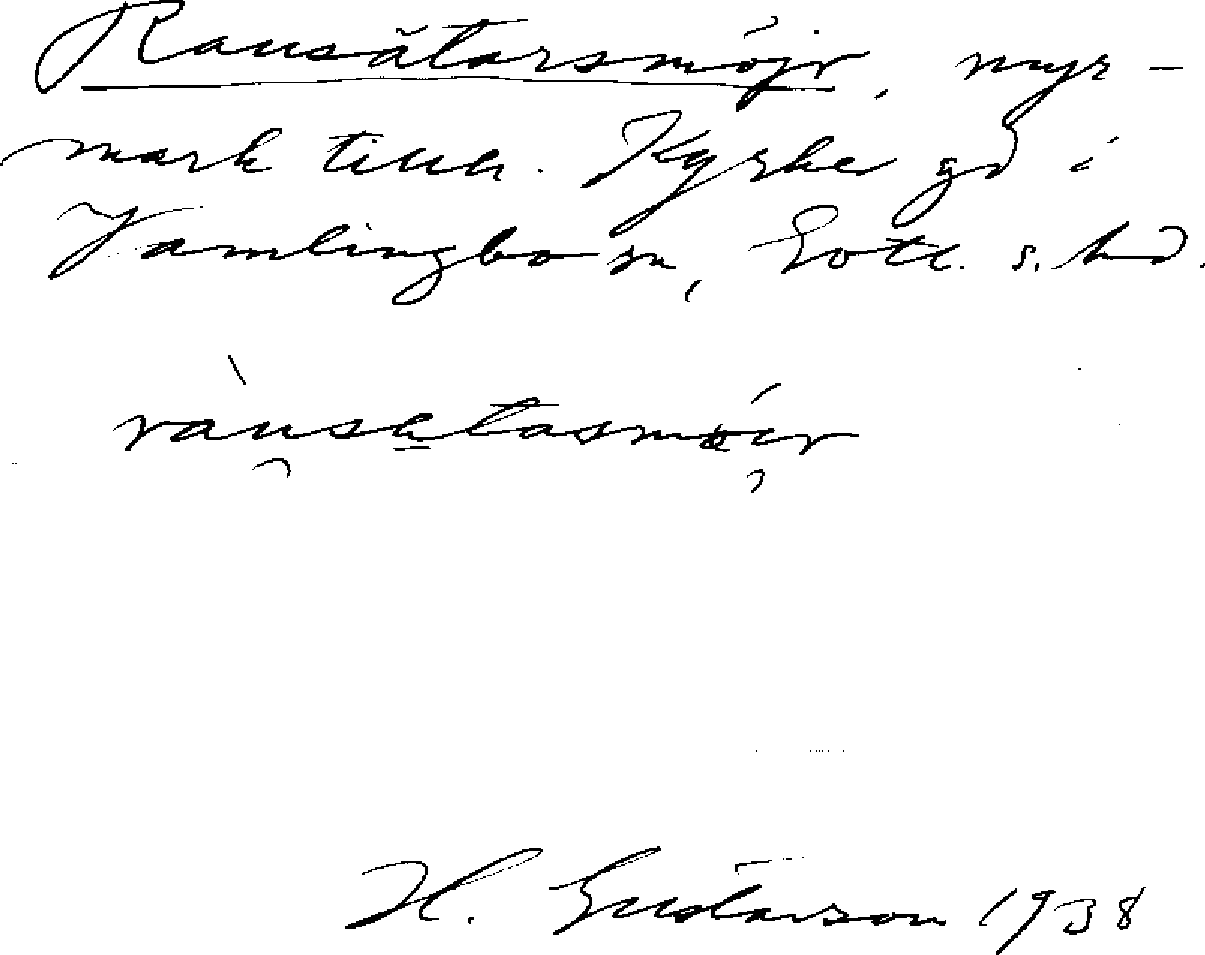 Rausätarsmöjr, myr-
mark tillh. Kyrke gd i
Vamlingbo sn, Gotl. s. hd.
ràu̯sętasmǿi̯r
H. Gustavson 1938